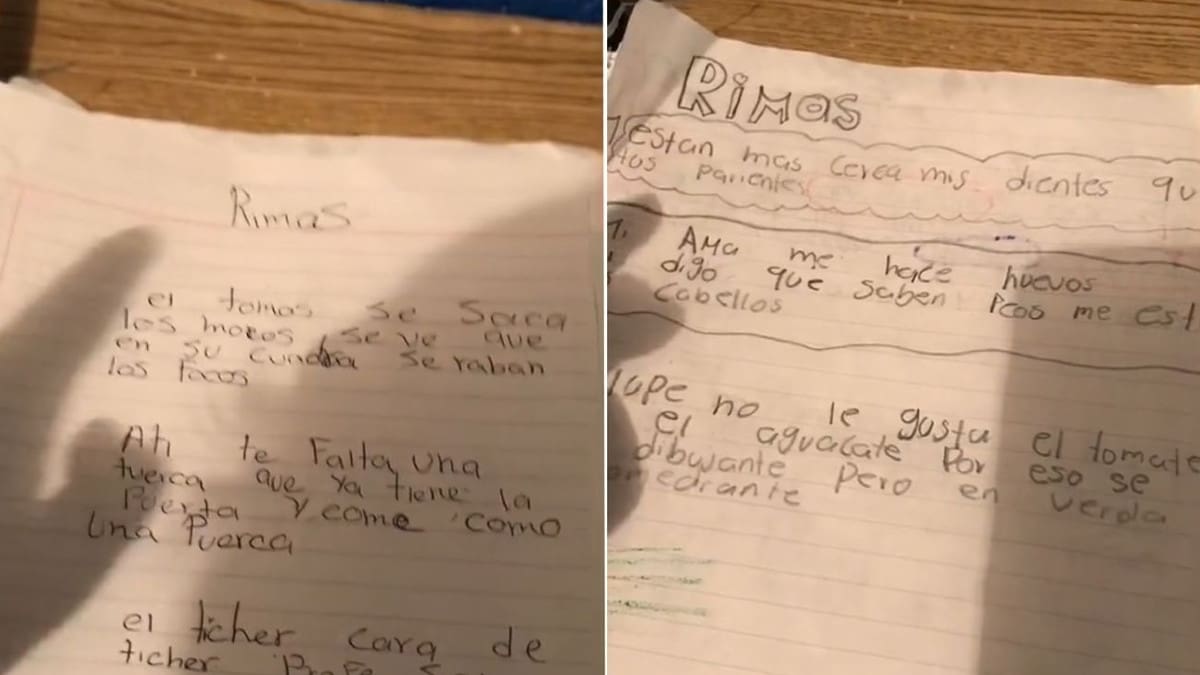 Rimas
el tomas se saca
los mocos se ve que
en su cundra se raban
los focos
Ati te Falta una
tuerca que ya tiene la
Puerta y come como
una Puerca
el ticher cara de
ticher
Rimas
estan mas cerca mis dientes qu
tus parientes
1. AMa me hace huevos
digo que saben me est
cabellos
lupe no le gusta el tomate
el aguacate Por eso se
dibujante pero en verda